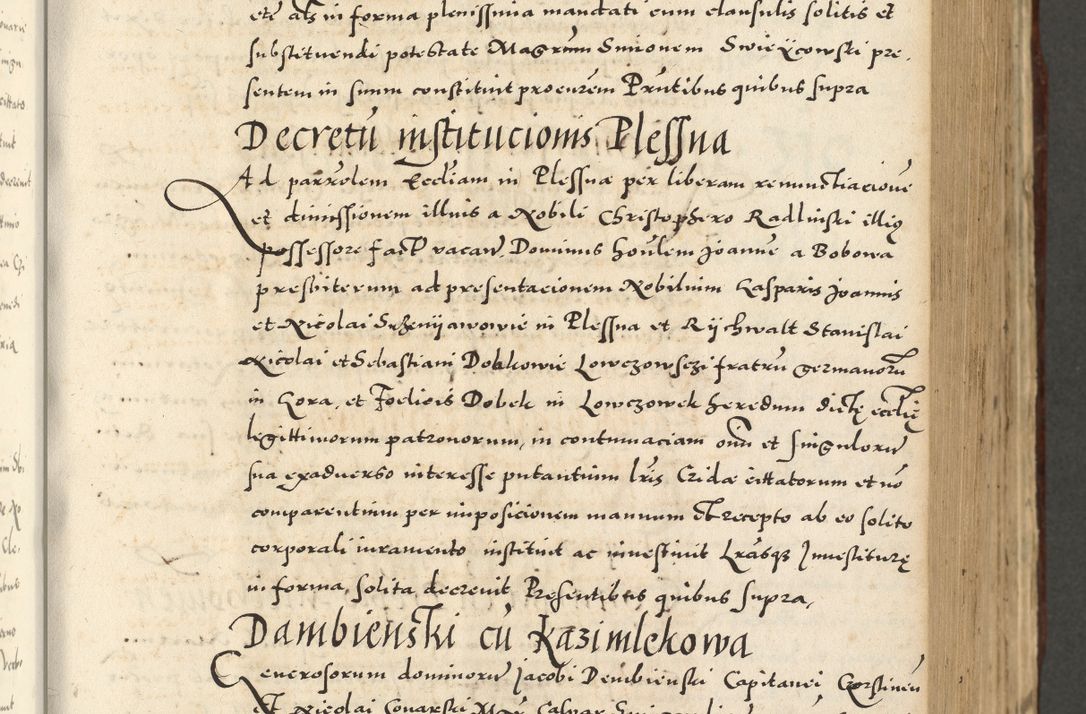 etc̃ als̃ in forma plenissima mandati cum clausulis solitis et
substituendi potestate Magrum Simonem Swieycowski pre,
sentem in suum constituit procurem Prñtibus quibus supra
Decretũ institucionis Plessna
Ad parrolem Eccliam in Plessna per liberam renunctiacione
et dimissionem illius a Nobili Christophero Radlinski illiq
possessore fact vacan̄. Dominus honlem Joanne a Bobowa
presbiterum ad presentacionem Nobilium Casparis Joannis
et Nicolai in Plessna et Rychwalt Stanislai
Nicolai et Sebastiani Dobkowie Lowczowsczi fratrũ germanorũ
in Gora, et Foelicis Dobek in Lowczowek heredum dictę ecclię
legittimorum patronorum, in contumaciam oĩm et singulorũ
sua exadverso interesse putantium lrĩs Cridæ cittatorum et nõ
comparentium per imposicionem manuum et recepto ab eo solito
corporali iuramento instituit ac investiuit Lrãsqз Investiturę
in forma, solita decreuit Presentibus quibus supra,
Dambienski cũ Kazimlekowa
Generosorum dominorũ Jacobi Dembienski Capitanei
Et Nicolai